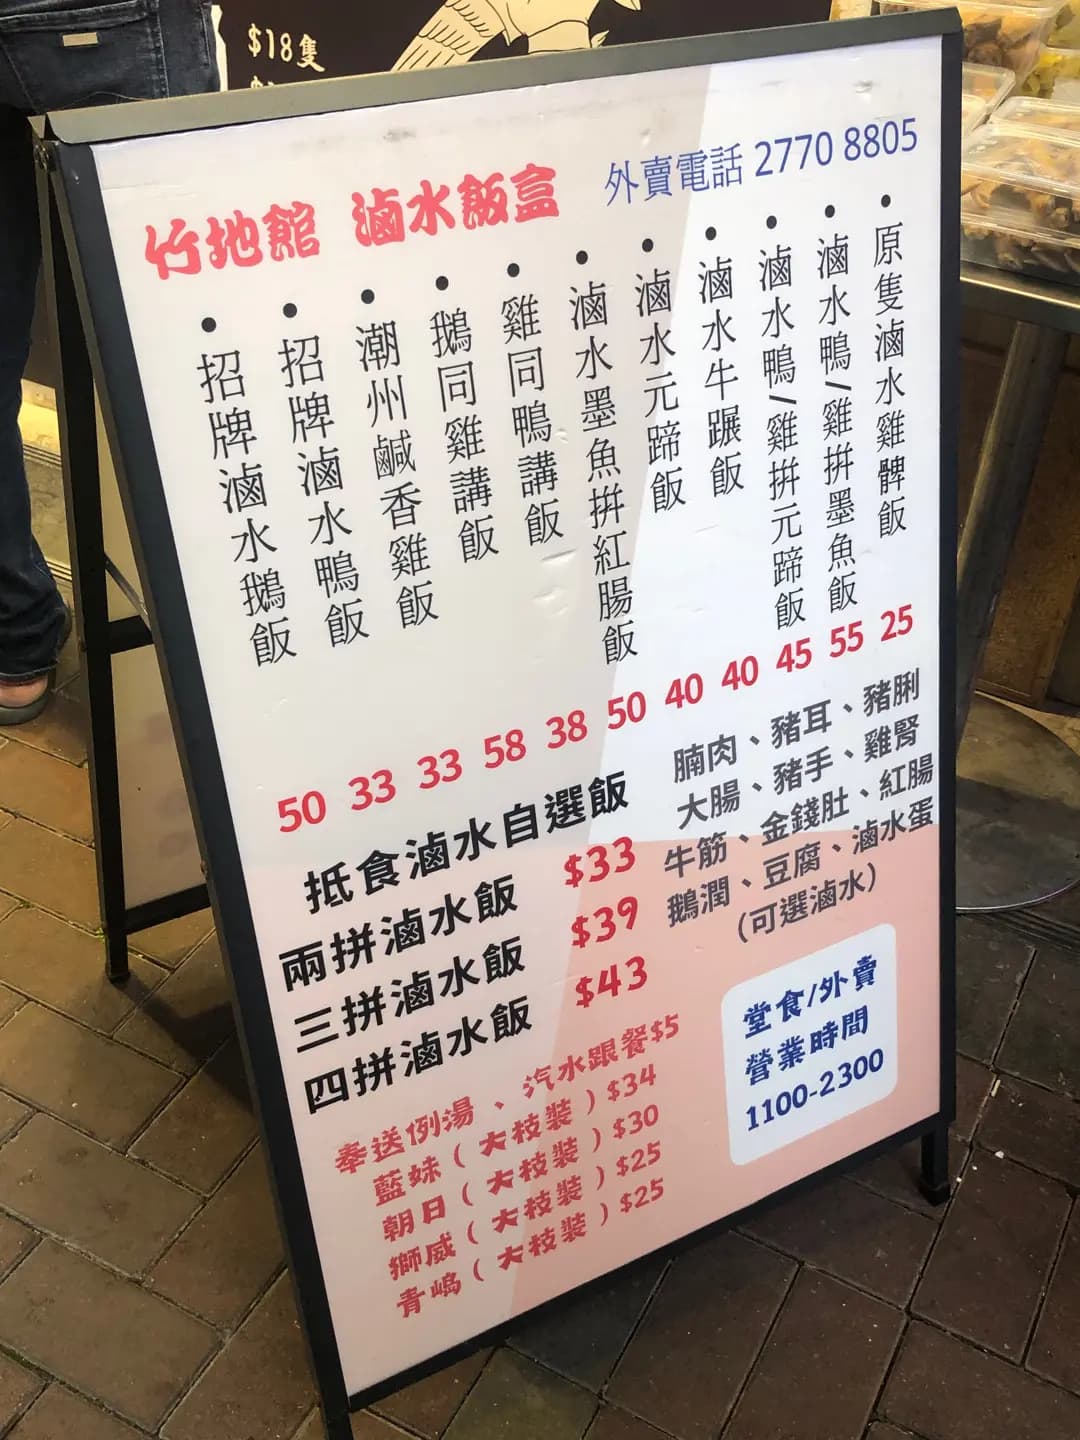 $18隻
竹地館 滷水飯盒
外賣電話 2770 8805
• 原隻滷水雞髀飯 25
• 滷水鴨/雞拼墨魚飯 55
• 滷水鴨/雞拼元蹄飯 45
• 滷水牛𦟌飯 40
• 滷水元蹄飯 40
• 滷水墨魚拼紅腸飯 50
• 雞同鴨講飯 38
• 鵝同雞講飯 58
• 潮州鹹香雞飯 33
• 招牌滷水鴨飯 33
• 招牌滷水鵝飯 50
抵食滷水自選飯
兩拼滷水飯 $33
三拼滷水飯 $39
四拼滷水飯 $43
腩肉、豬耳、豬脷
大腸、豬手、雞腎
牛筋、金錢肚、紅腸
鵝潤、豆腐、滷水蛋
(可選滷水)
奉送例湯、汽水跟餐$5
藍妹(大枝裝)$34
朝日(大枝裝)$30
獅威(大枝裝)$25
青嶋(大枝裝)$25
堂食/外賣
營業時間
1100-2300